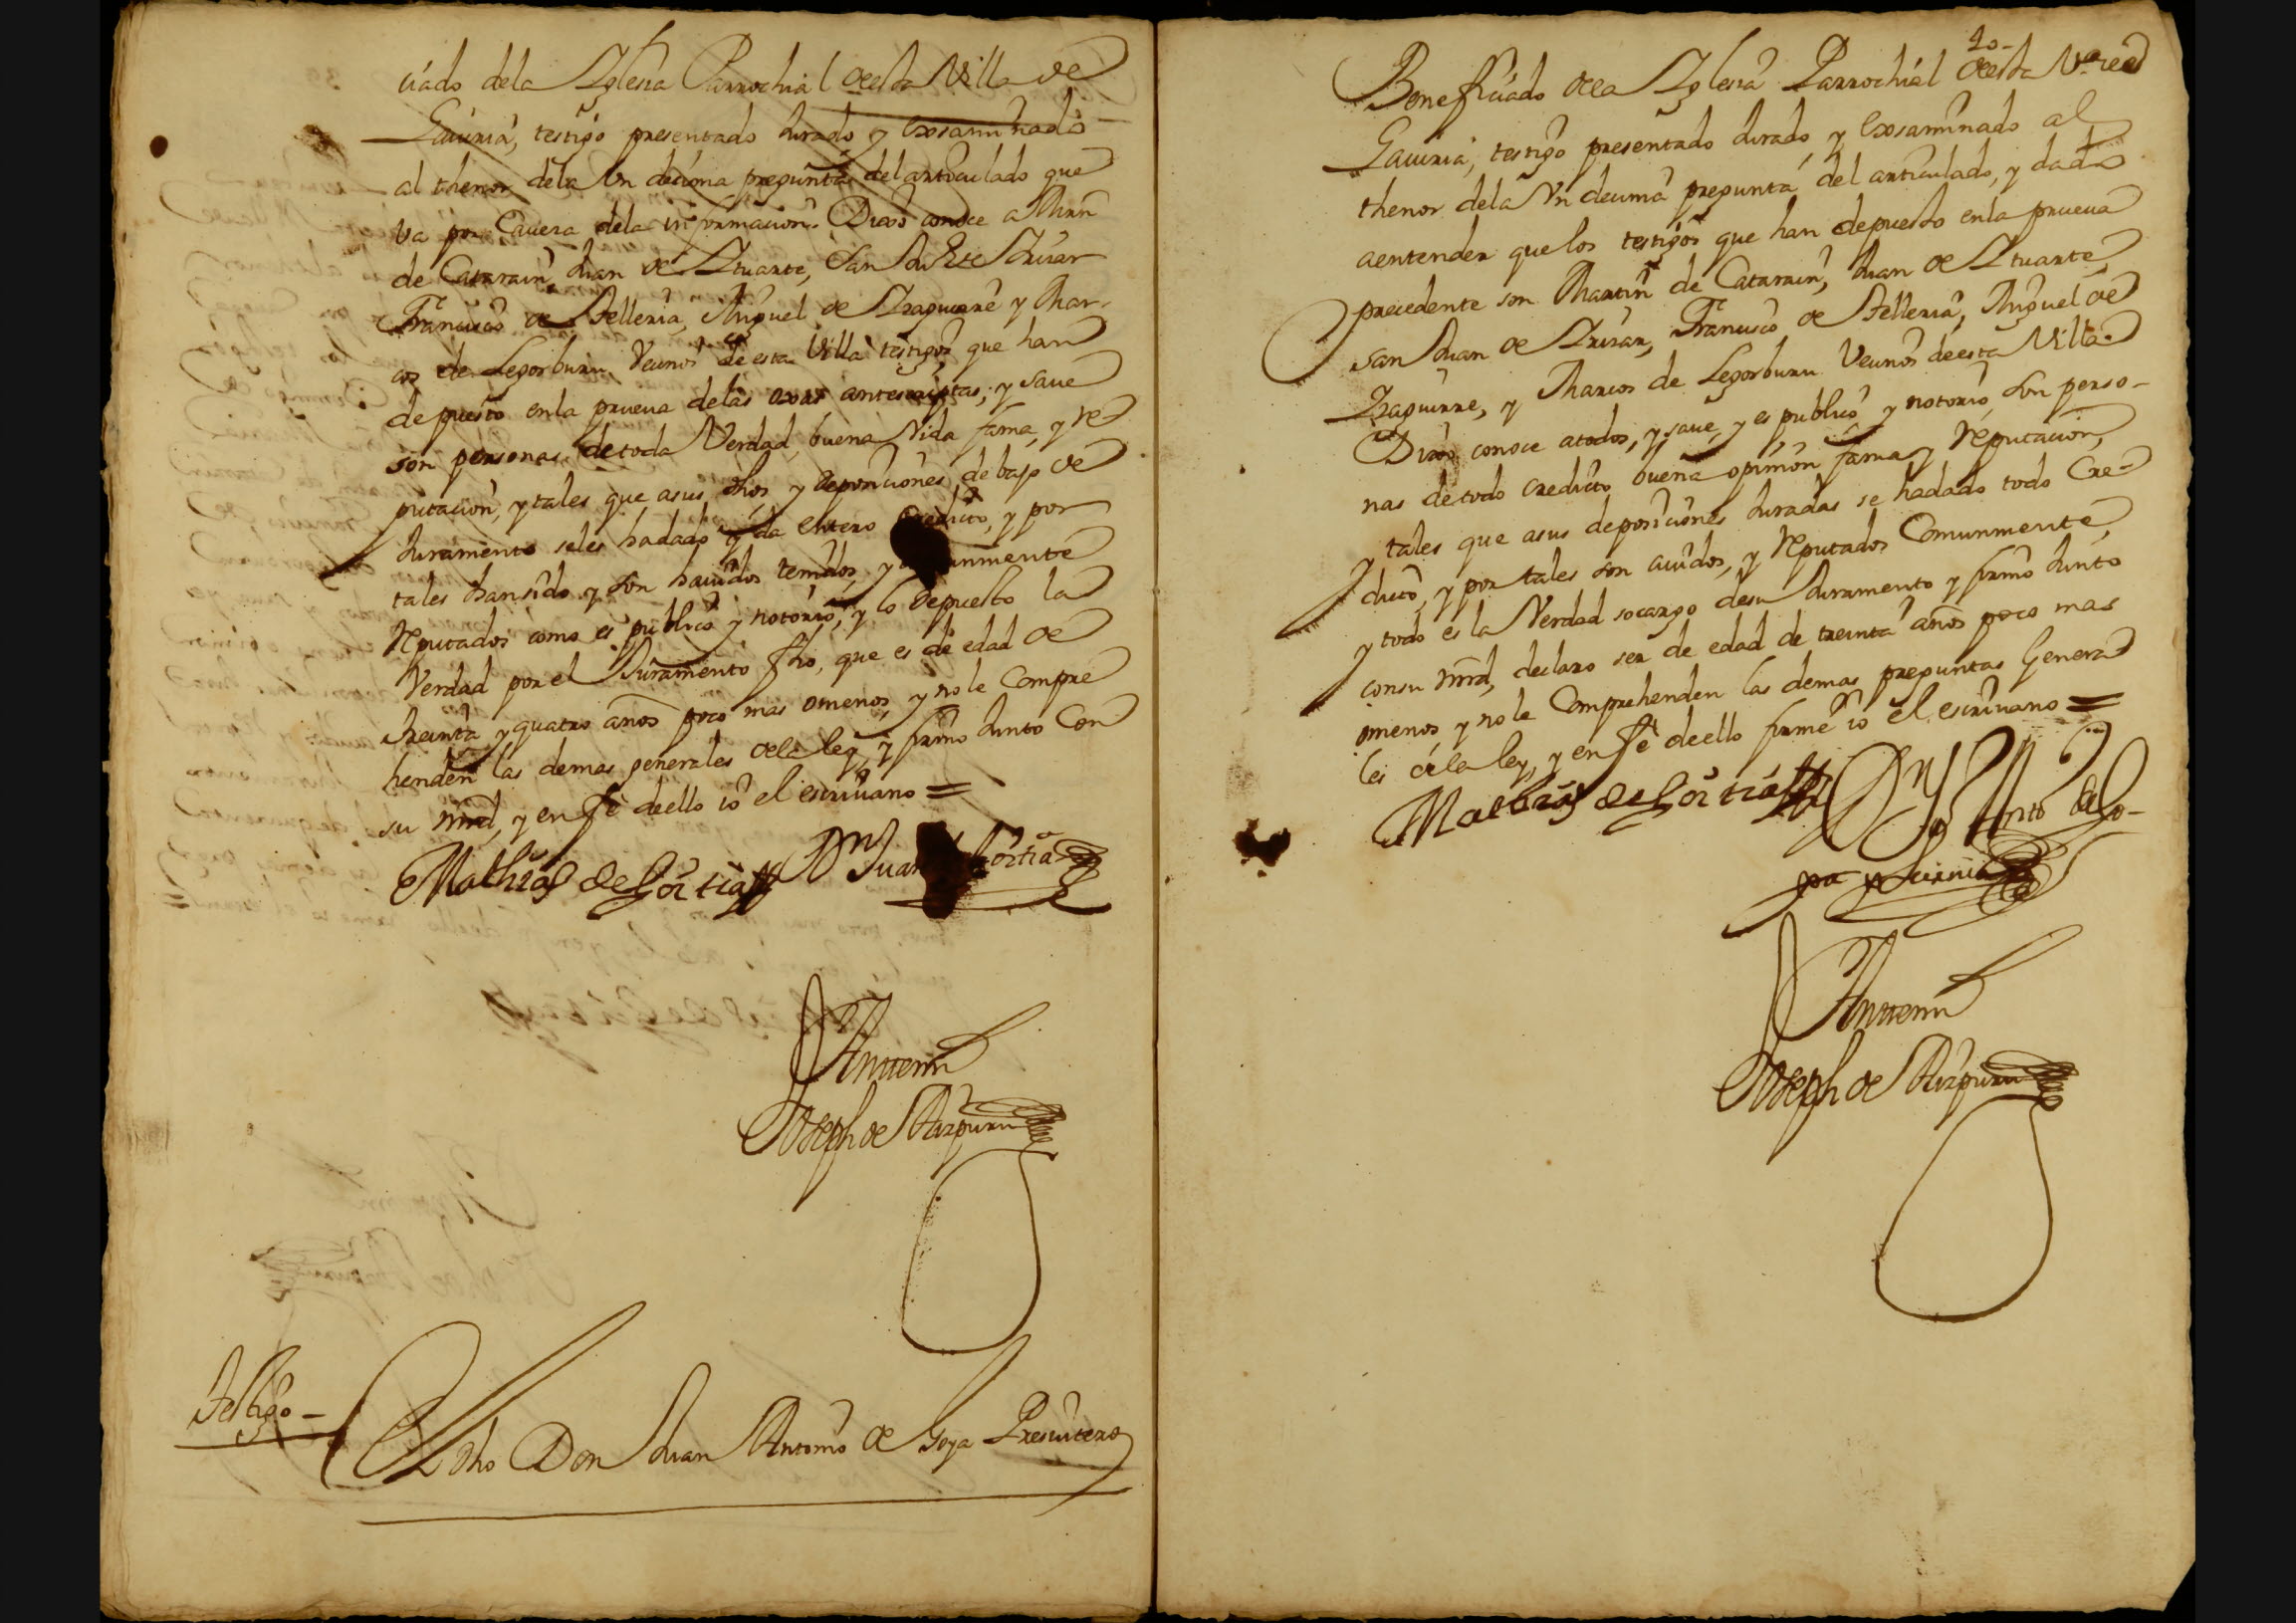 ciado dela Yglesia Parrochial deesta Villa de
Gauiria, testigo presentado Jurado y Exsaminado
al thenor dela Vn decima pregunta del articulado que
va por Cauera dela informacion. Dixo conoce a Mrn
de Catarain, Juan de Ytuarte, San Ju Yrizar
Francisco de Telleria, Miguel de Yzaguirre y Mar-
cos de Legorburu Vecinos de esta Villa testigos que han
depuesto enla prueua delas antescriptas, y saue
son personas detoda Verdad, buena Vida fama, y re
putacion, y tales que asus dhos y deposiciones debajo de
Juramento seles hadado y da entero credito, y por
tales hansido y son hauidos tenidos, y
Reputados como es publico y notorio, y lo depuesto la
Verdad por el Juramento fho, que es de edad de
treinta y quatro años poco mas omenos, y nole Compre
henden las demas generales dela ley, y firmo Junto Con
su mrd, y en fe deello io el escriuano =
Mathias de Goitia Dn Juan Goitia
Antemi
Joseph de Aizpuru
Testigo - El dho Don Juan Antonio de Goya Presuitero
40-
Beneficiado dela Yglesia Parrochial deesta Va de
Gauiria, testigo presentado Jurado, y Exsaminado al
thenor dela Vn decima pregunta del articulado, y dado
aentender quelos testigos que han depuesto enla prueua
precedente son Martin de Catarain, Juan de Ytuarte
san Juan de Yrizar, Francisco de Telleria, Miguel de
Yzaguirre, y Marcos de Legorburu Vecinos deesta Villa.
Dixo conoce atodos, y saue, y es publico y notorio, son perso-
nas detodo credito buena opinion fama y Reputacion,
y tales que asus deposiciones Juradas se hadado todo Cre-
dito, y por tales son auidos, y Reputados Comunmente,
y todo es la Verdad socargo desu Juramento y firmo Junto
consu mrd, declaro ser de edad de treinta años poco mas
omenos y nole Comprehenden las demas preguntas Genera
les dela ley, y en fe deello firme io el escriuano =
Mathias de Goitia Dn Ju Anto de Go-
ya
Antemi
Joseph de Aizpuru